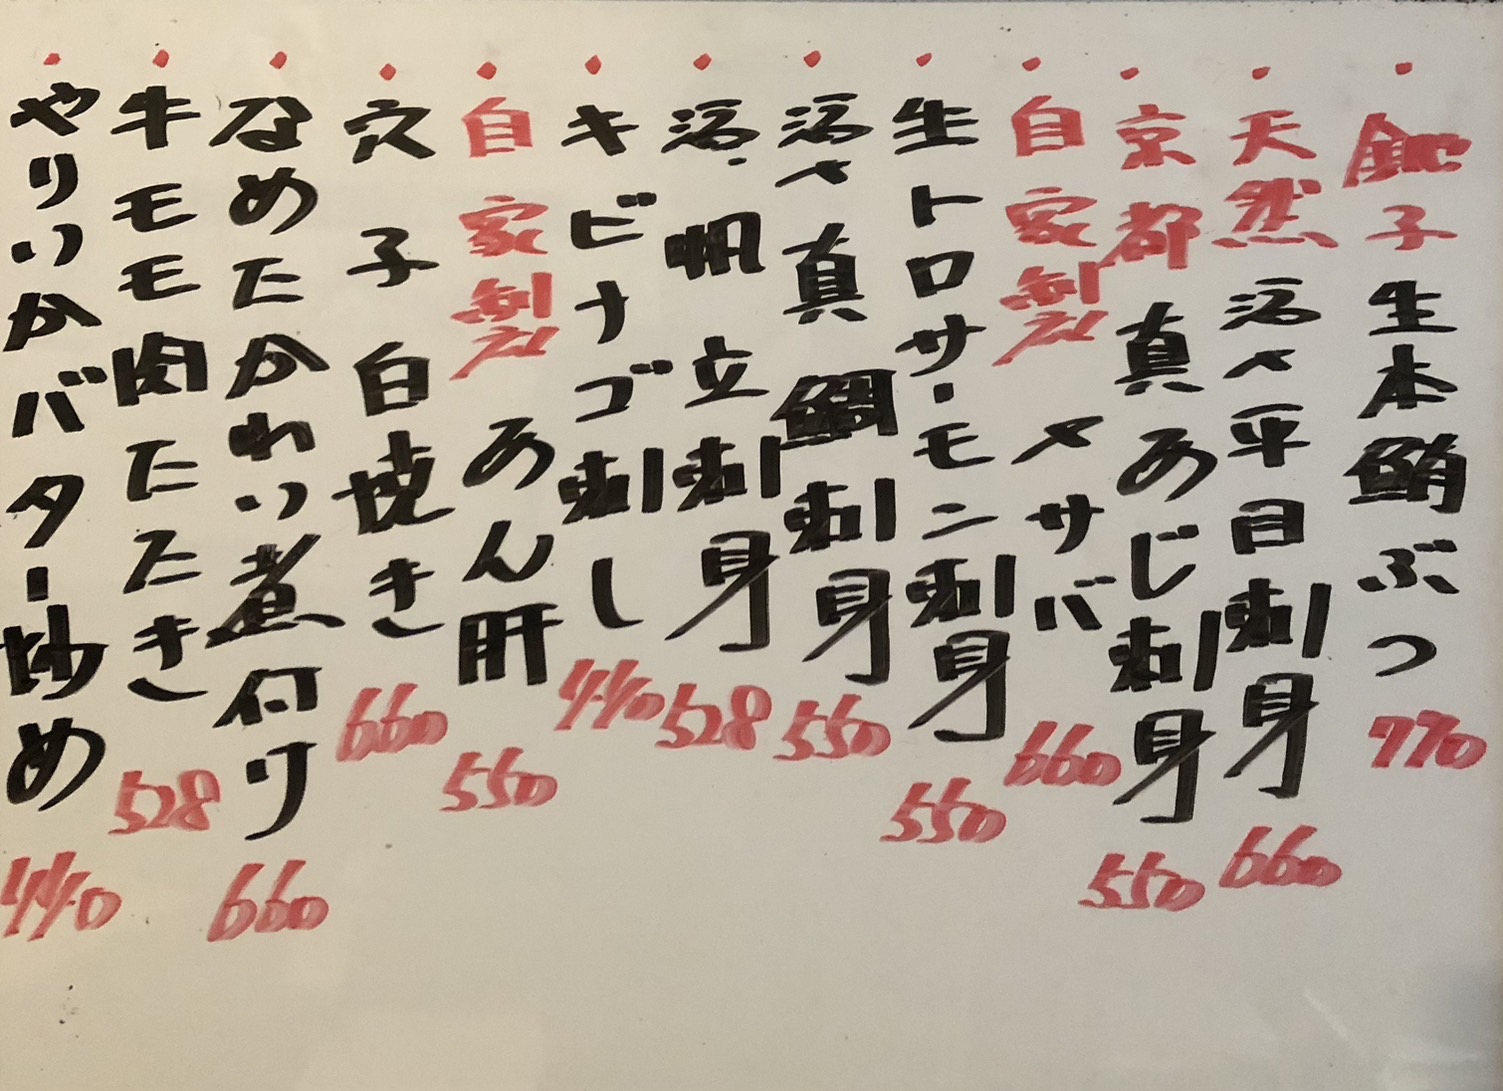 ・銚子生本鮪ぶつ 770
・天然活〆平目刺身 660
・京都真あじ刺身 550
・自家製〆サバ 660
・生トロサーモン刺身 550
・活〆真鯛刺身 550
・活・帆立刺身 528
・キビナゴ刺し 440
・自家製あん肝 550
・穴子白焼き 660
・なめたかれい煮付け 660
・牛モモ肉たたき 528
・やりいかバター炒め 440